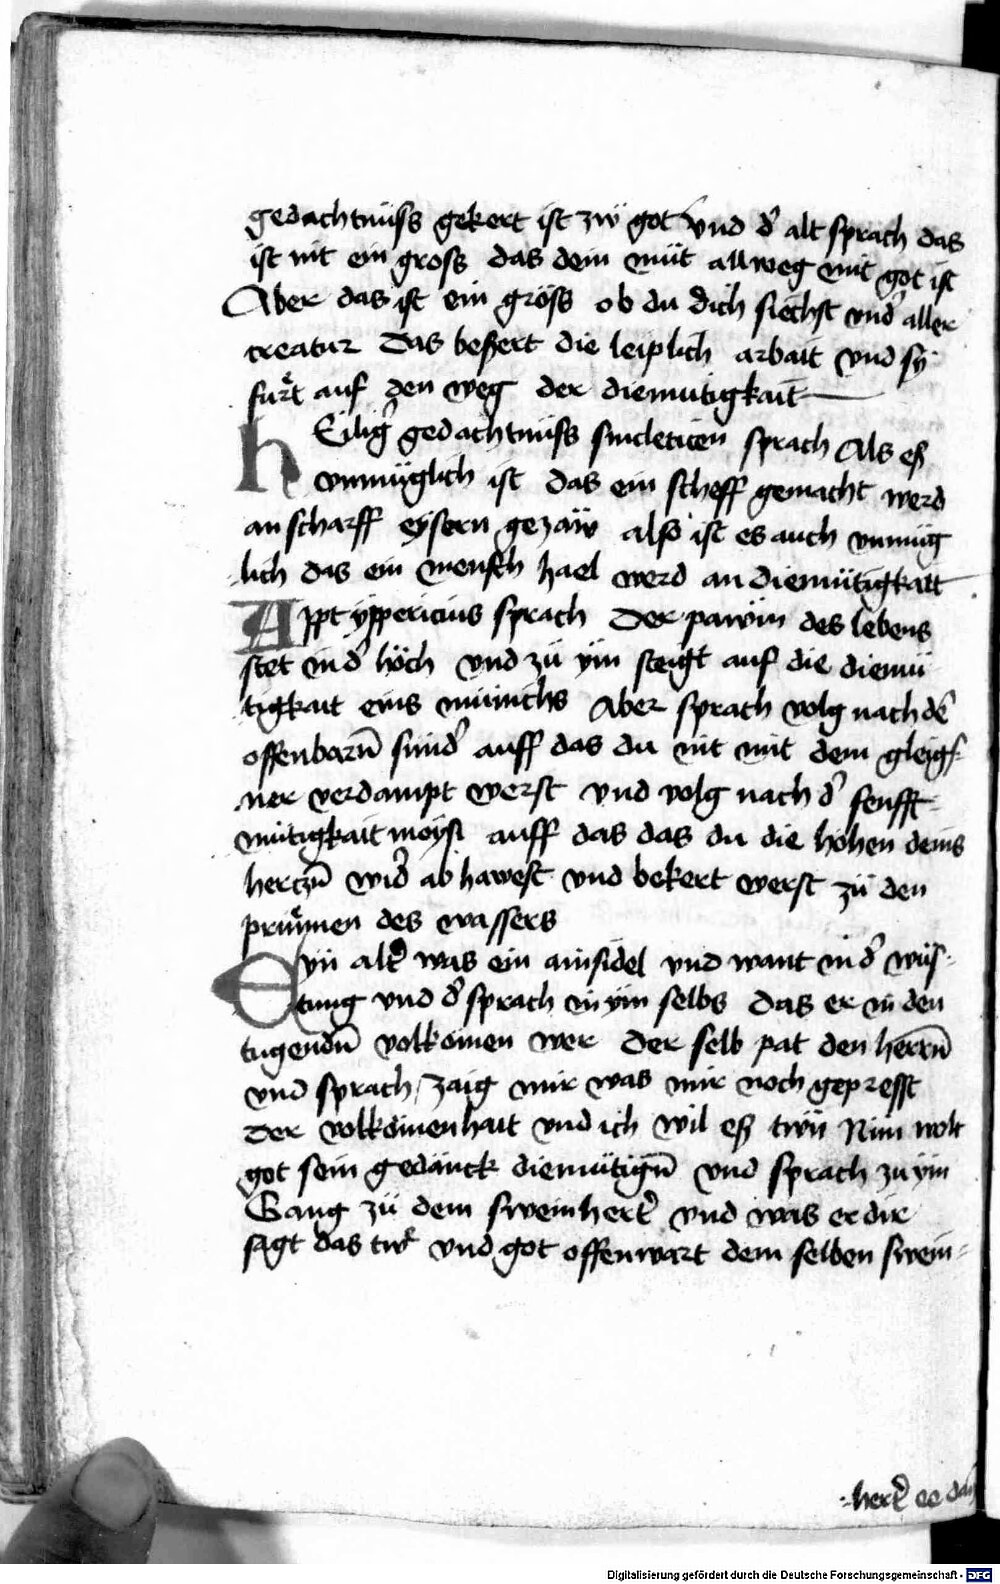 gedachtnüss gekert ist zw got Vnd d' alt sprach das
ist nit ein gross das dein müt allweg mit got ist
Aber das ist ein gröss ob du dich siechst vnd' aller
creatur Das bessert die leiplich arbait vnd sy
furt auf den weg der diemutigkait
hEilig' gedachtnüss sincleticen sprach Als eß
vnmüglich ist das ein scheff gemacht werd
an scharff eysern gezäw also ist es auch vnmüg
lich das ein mensch hael werd an diemütigkaitt
Appt ypericius sprach Der pawm des lebens
stet in d' höch vnd zü ym steigt auf die diemü
tigkait eins münichs Aber sprach volg nach de'
offenbarn sünd' auff das du nit mit dem gleigs
ner verdampt werst vnd volg nach d' senfft-
mütigkait moysi auff das das du die höhen deins
hertzn wid' ab hawest vnd bekert werst zü den
prunnen des wassers
Eyn alt' was ein ainsidel vnd want in d' wüs-
tung vnd d' sprach in ym selbs das er in den
tugendn volkomen wer Der selb pat den herrn
vnd sprach / zaig mir was mir noch geprest
Der volkomenhait vnd ich wil eß twn Nun wolt
got sein gedänck diemütign vnd sprach zu ym
Gang zü dem sweinhert' vnd was er dir
sagt das tw vnd got offenwart dem selben swein-
hert' ee das
Digitalisierung gefördert durch die Deutsche Forschungsgemeinschaft - DFG